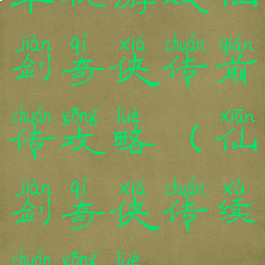 jiàn qí xiá chuán qián
剑奇侠传前
chuán gōng lüè xiān
传攻略(仙
jiàn qí xiá chuán xù
剑奇侠传续
chuán gōng lüè